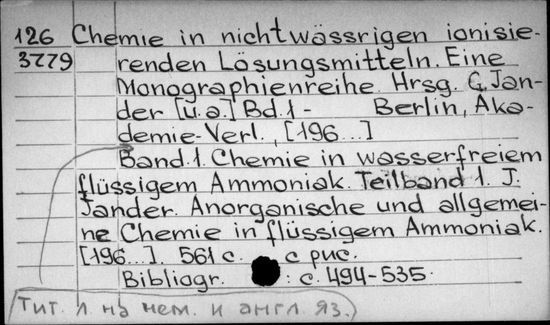 126 Chemie in nichtwässrigen ionisie-
3779 renden Lösungsmitteln. Eine
Monographienreihe. Hrsg. G. Jan-
der [u.a.] Bd.1- Berlin, Aka-
demie-Verl., [196...]
Band.1. Chemie in wasserfreiem
flüssigem Ammoniak. Teilband 1. J.
Jander. Anorganische und allgemei-
ne Chemie in flüssigem Ammoniak.
[196...]. 561 с. с рис.
Bibliogr.: с. 494-535.
Тит. л. на нем. и англ. яз.